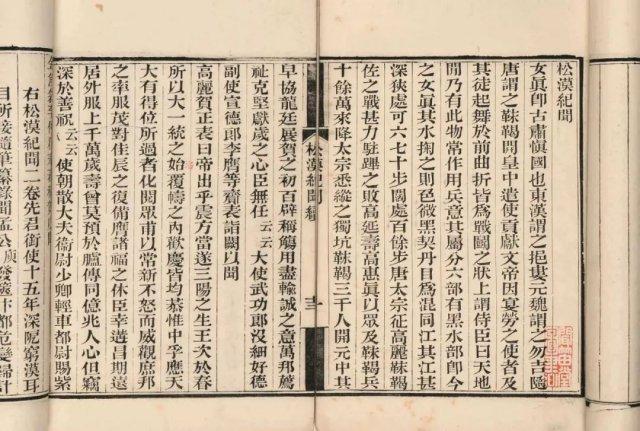 松漠紀聞
女眞卽古肅愼國也東漢謂之挹婁元魏謂之勿吉隋
唐謂之靺鞨開皇中遣使貢獻文帝因宴勞之使者及
其徒起舞於前曲折皆爲戰鬭之狀上謂侍臣曰天地
閒乃有此物常作用兵意其屬分六部有黑水部卽今
之女眞其水掬之則色微黑契丹目爲混同江其江甚
深狹處可六七十步闊處百餘步唐太宗征高麗靺鞨
佐之戰甚力駐蹕之敗高延壽高惠眞以眾及靺鞨兵
十餘萬來降太宗悉縱之獨坑靺鞨三千人開元中其
松漠紀聞 續
早協龍廷展賀之初百辟稱觴用盡輸誠之意萬邦薦
祉克堅獻歲之心臣無任云云 大使武功郎沒細好德
副使宣德郎李膺等齎表詣闕以聞
高麗賀正表曰帝出乎震方當遂三陽之生王次於春
所以大一統之始覆幬之內歡慶皆均恭惟中孚應天
大有得位所過者化閱眾甫以常新不怒而威觀庶邦
之率服茂對佳辰之復備膺諸福之休臣幸遘昌期遠
居外服上千萬歲壽曾莫預於臚傳同億兆人心但竊
深於善祝云云 使朝散大夫衞尉少卿輕車都尉賜紫
右松漠紀聞二卷先君銜使十五年深阨窮漠耳
目所接隨筆纂錄聞孟公庾發篋汴都危變歸計